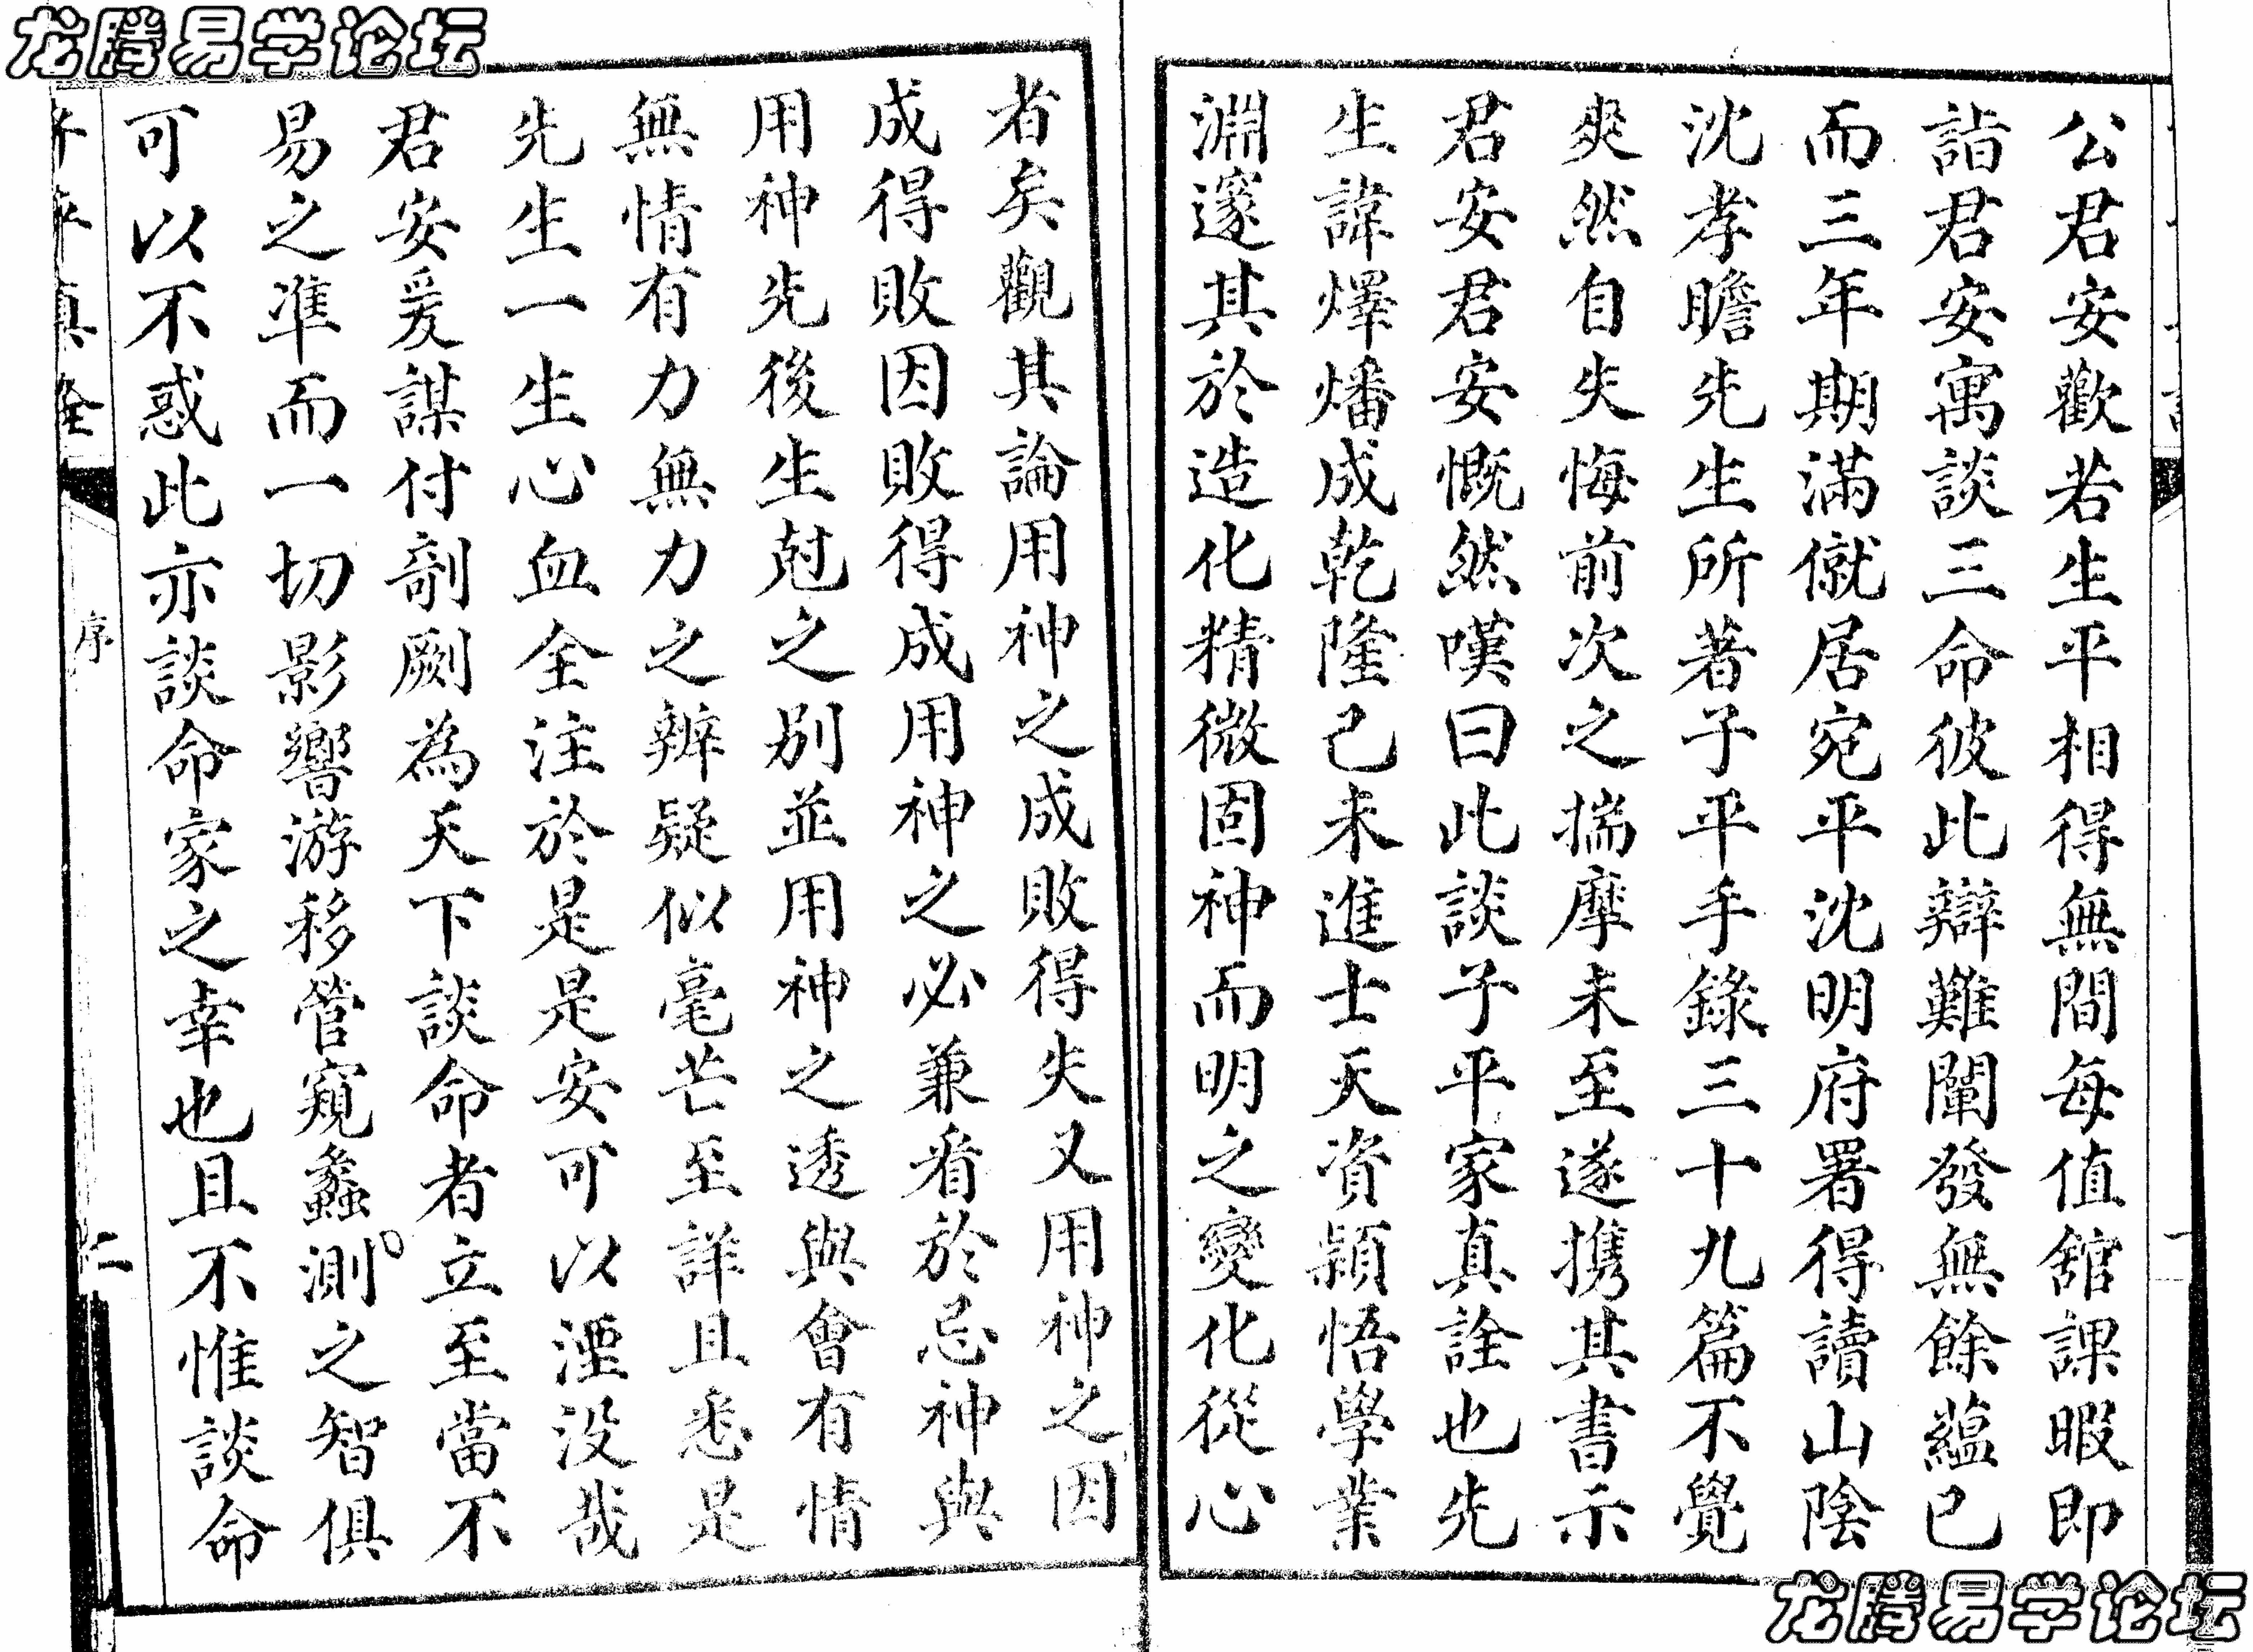 龙腾易学论坛
公君安歡若生平相得無間每值舘課暇即
詣君安寓談三命彼此辯難闡發無餘蘊已
而三年期滿僦居宛平沈明府署得讀山陰
沈孝瞻先生所著子平手錄三十九篇不覺
爽然自失悔前次之揣摩未至遂携其書示
君安君安慨然嘆曰此談子平家真詮也先
生諱燡燔成乾隆己未進士天資穎悟學業
淵邃其於造化精微固神而明之變化從心
者矣觀其論用神之成敗得失又用神之因
成得敗因敗得成用神之必兼看於忌神與
用神先後生尅之别並用神之透與會有情
無情有力無力之辨疑似毫芒至詳且悉是
先生一生心血全注於是是安可以湮没哉
君安爰謀付剞劂為天下談命者立至當不
易之準而一切影響游移管窺蠡測之智俱
可以不惑此亦談命家之幸也且不惟談命
子平真詮
序
二
龙腾易学论坛